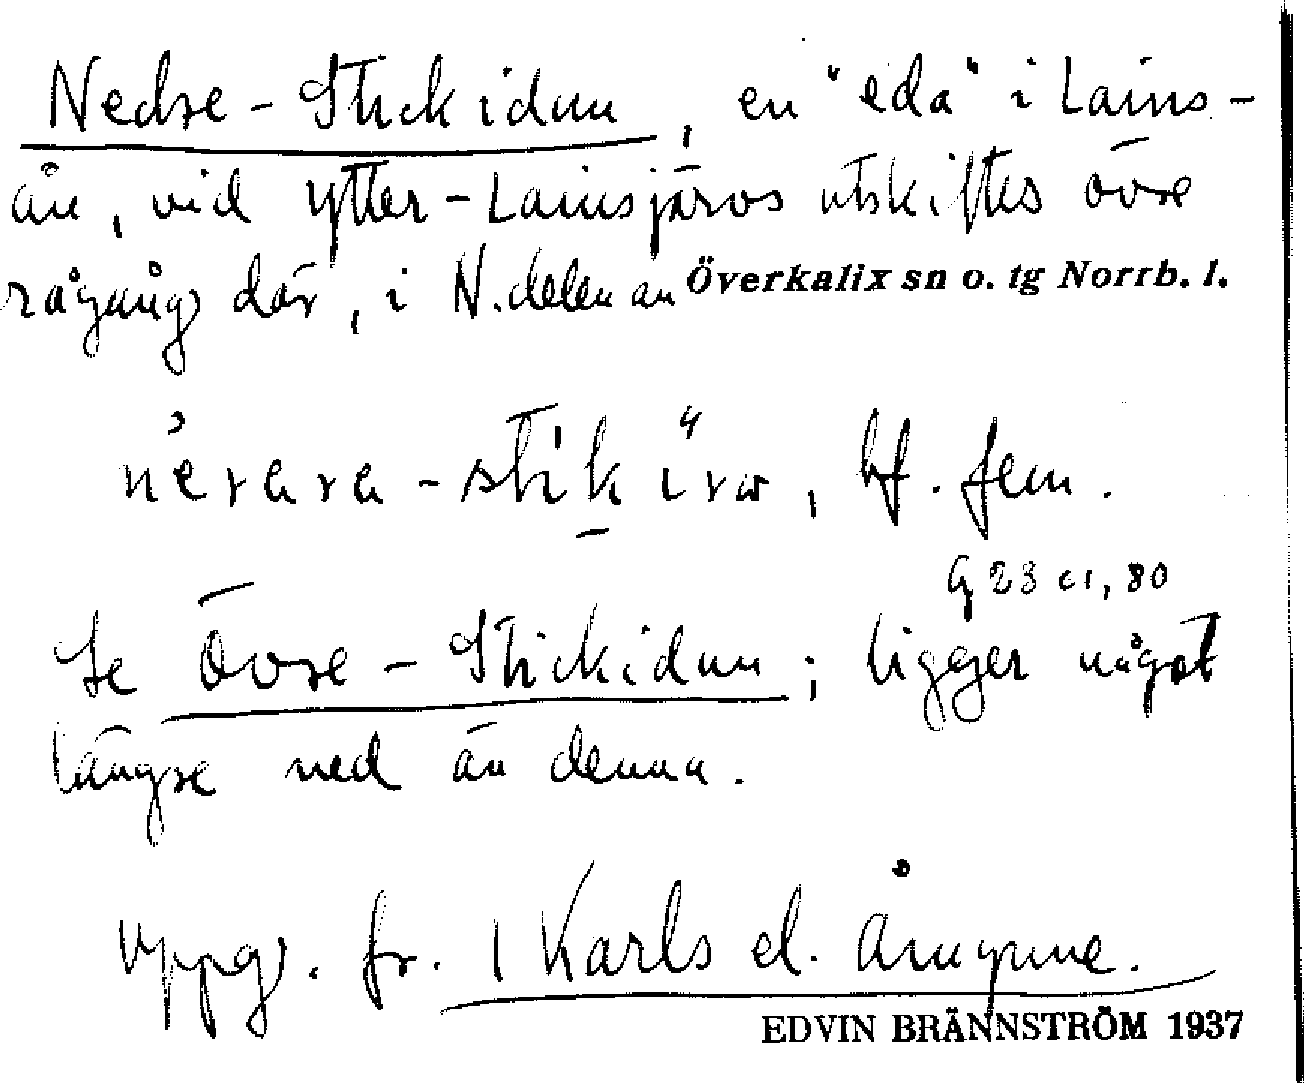 Nedre-Stickidan, en "eda" i Lains-
ån, vid Ytter-Lainsjärvs utskiftes övre
rågång där, i N.delen av Överkalix sn o. tg Norrb. l.
bf. fem.
G 23 c1, 80
Se Övre-Stickidan; ligger något
längre ned än denna.
Uppg. fr. 1 Karls el. Ånynne.
EDVIN BRÄNNSTRÖM 1937